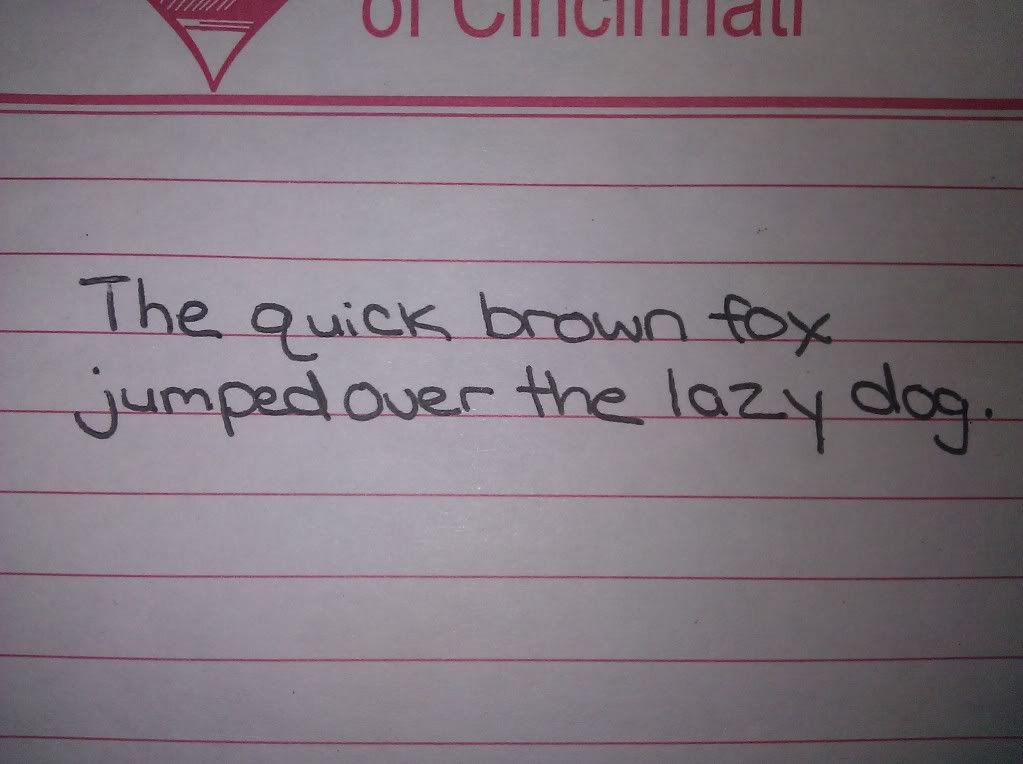 of Cincinnati
The quick brown fox
jumped over the lazy dog.